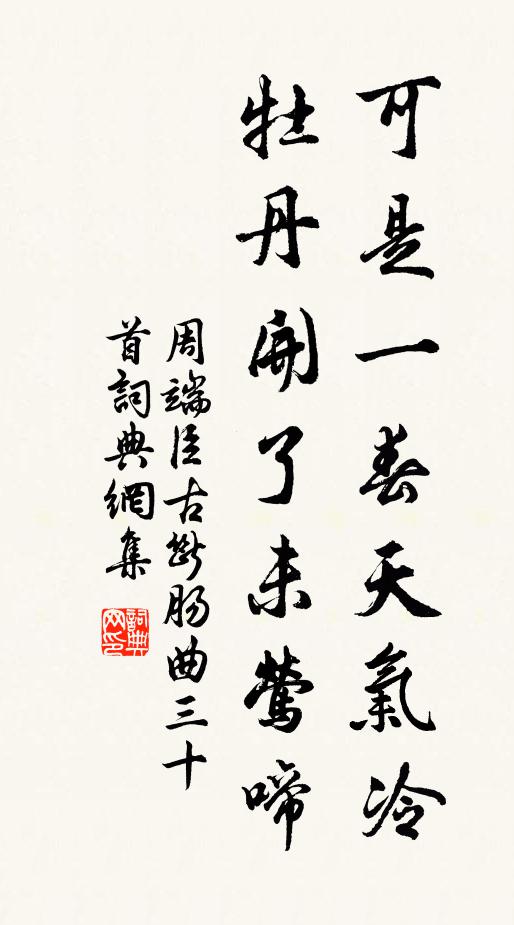 可是一春天氣冷
牡丹開了未鶯啼
周端臣古斷腸曲三十
首詞典網集
詞典
網印